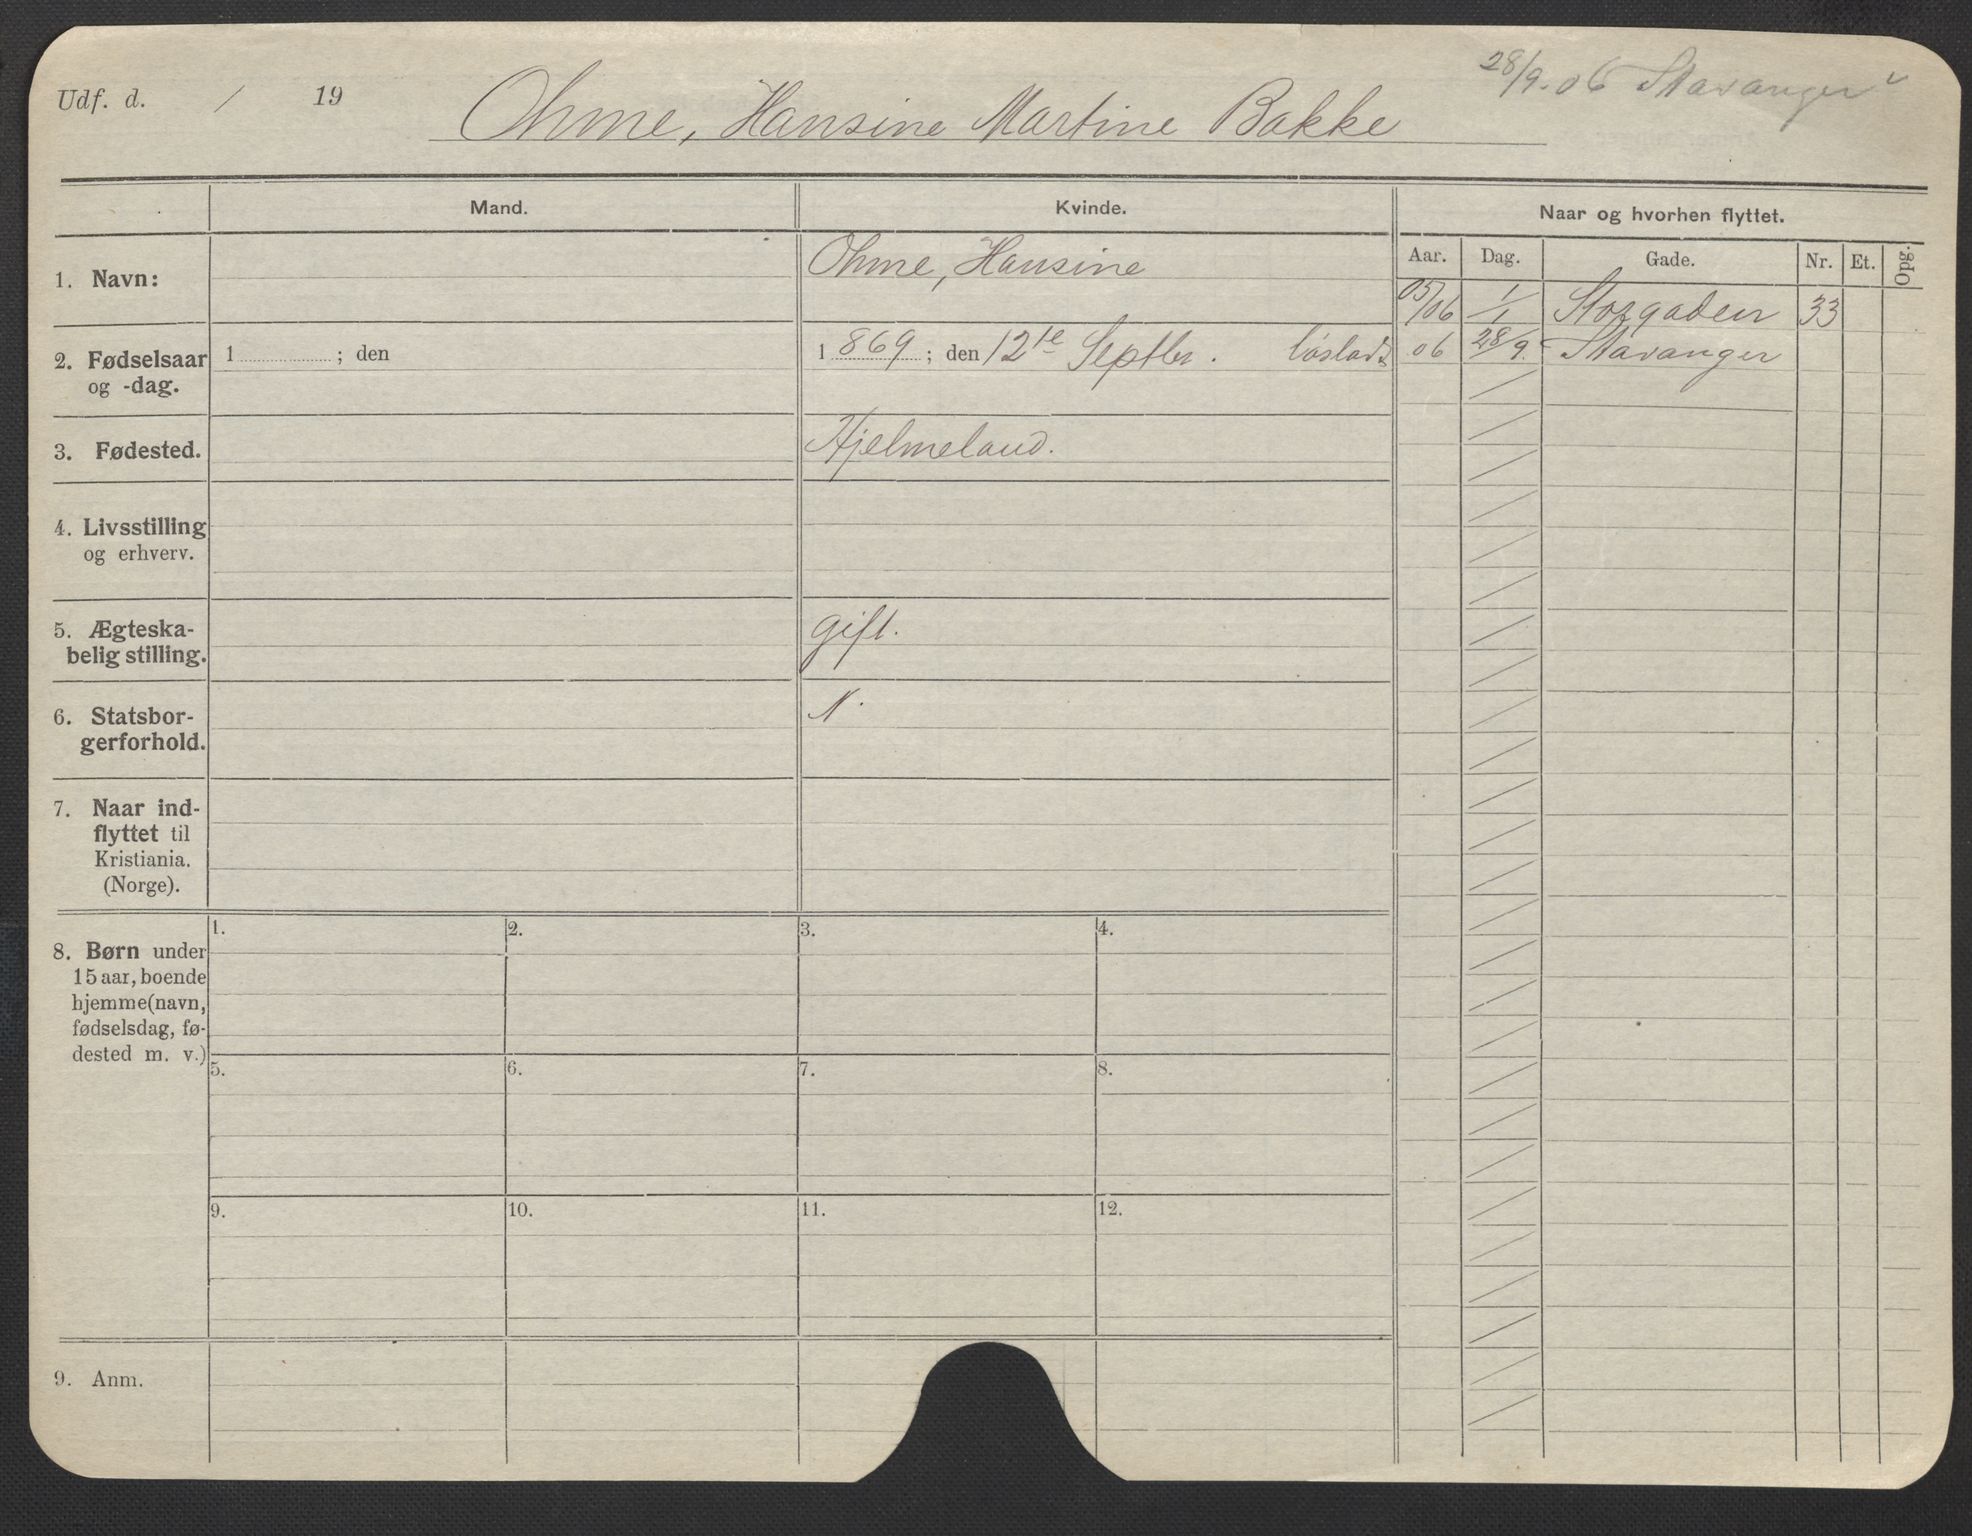 Udf. d. / 19
Ohme, Hansine Martine Bakke
28/9. 06 Stavanger
Mand.
Kvinde.
Naar og hvorhen flyttet.
Aar. Dag. Gade. Nr. Et. Opg.
05/06 1/1 Storgaden 33
06 28/9. Stavanger
1. Navn:
Ohme, Hansine
2. Fødselsaar
og -dag.
1 ; den
1 869 ; den 12te Septbr.
3. Fødested.
Hjelmeland.
4. Livsstilling
og erhverv.
5. Ægteska-
belig stilling.
gift.
6. Statsbor-
gerforhold.
N.
7. Naar ind-
flyttet til
Kristiania.
(Norge).
8. Børn under
15 aar, boende
hjemme (navn,
fødselsdag, fø-
dested m. v.)
1. 2. 3. 4.
5. 6. 7. 8.
9. 10. 11. 12.
9. Anm.